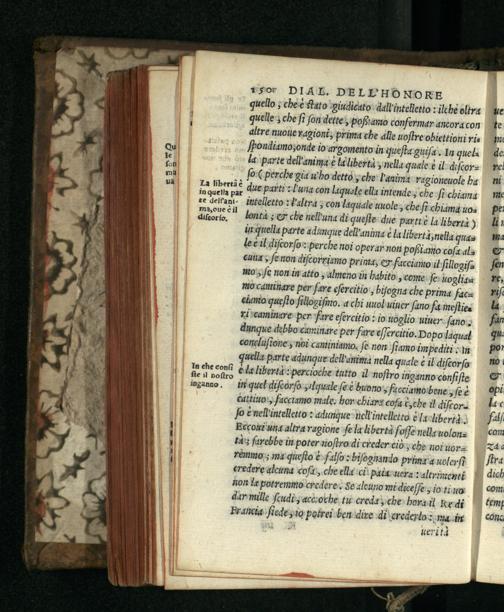 150 DIAL. DELL'HONORE
quello, che è stato giudicato dall'intelletto: ilche oltra
quelle, che si son dette, possiamo confermar ancora con
altre nuoue ragioni, prima che alle uostre obiettioni ri
spondiamo, onde io argomento in questa guisa. In quel
la parte dell'anima è la libertà, nella quale è il discor-
so (perche gia u'ho detto, che l'anima ragioneuole ha
due parti: l'una con laquale ella intende, che si chiama
intelletto: l'altra, con laquale uuole, che si chiama uo-
lontà; & che nell'una di queste due parti è la libertà)
in quella parte adunque dell'anima è la libertà, nella qua-
le è il discorso: perche noi operar non possiamo cosa al-
cuna, se non discorriamo prima, & facciamo il sillogis-
mo, se non in atto, almeno in habito, come se uoglia-
mo caminare per fare esercitio, bisogna che prima fac-
ciamo questo sillogismo. a chi uuol uiuer sano fa mestie-
ri caminare per fare esercitio: io uoglio uiuer sano,
dunque debbo caminare per fare essercitio. Dopo laqual
conclusione, noi caminiamo, se non siamo impediti. In
quella parte adunque dell'anima nella quale è il discorso
è la libertà: percioche tutto il nostro inganno consiste
in quel discorso, ilquale se è buono, facciamo bene, se è
cattiuo, facciamo male. hor chiara cosa è, che il discor-
so è nell'intelletto: adunque nell'intelletto è la libertà.
Eccoui una altra ragione se la libertà fosse nella uolon-
tà; sarebbe in poter nostro di creder ciò, che noi uor-
remmo; ma questo è falso: bisognando prima a uolersi
credere alcuna cosa, che ella ci paia uera: altrimente
non la potremmo credere. Se alcuno mi dicesse, io ti uo
dar mille scudi, accioche tu creda, che hora il Re di
Francia siede, io potrei ben dire di crederlo: ma in
uerità
La libertà è
in quella par
te dell'ani-
ma, oue è il
discorso.
In che consi
ste il nostro
inganno.